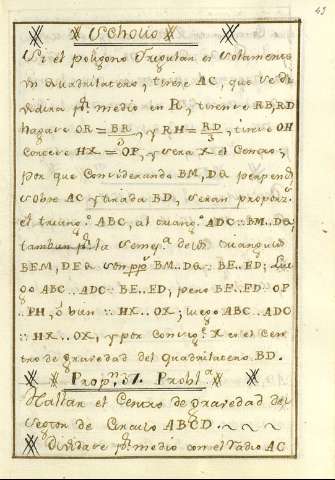 43
Scholio
Si el poligono Irregular es Solamente
un Quadrilatero, tirese AC, que se di
vidira pr. medio en R, tirense RB, RD
hagase OR = BR, y RH = RD, tirese OH
3 3
Cortese HX = OP, y sera X el Centro;
por que Considerando BM, DQ perpends.
sobre AC y tirada BD, seran proporz.
el triang.o ABC, al triang.o ADC :: BM..DQ;
tambien pr. la Semeja. de los triangulos
BEM, DEQ BM..DQ :: BE..ED; Lue
go ABC..ADC :: BE..ED; pero BE..ED :: OP
..PH, ó bien :: HX..OX; luego ABC..ADC
:: HX..OX, y por Consig.e X es el Cen
tro de gravedad del Quadrilatero BD.
Propn. 37. Probla.
Hallar el Centro de gravedad del
Sector de Circulo ABCD.
Dividase pr. medio con el radio AC